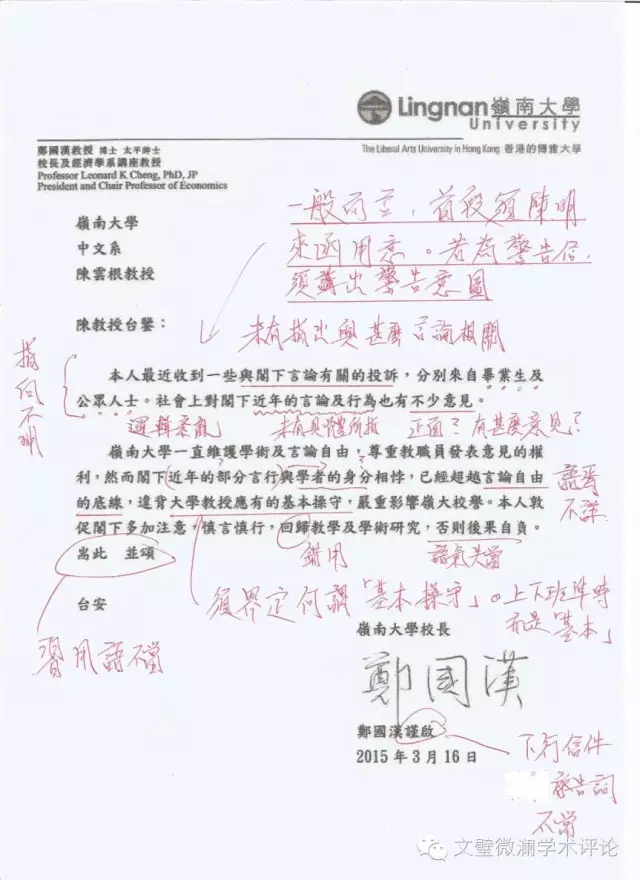 Lingnan 嶺南大學
University
鄭國漢教授 博士 太平紳士
校長及經濟學系講座教授
Professor Leonard K Cheng, PhD, JP
President and Chair Professor of Economics
The Liberal Arts University in Hong Kong 香港的博雅大學
一般而言，首段須陳明
來函用意。若為警告信，
須講出警告意圖
嶺南大學
中文系
陳雲根教授
陳教授台鑒：
未有指出與甚麼言論相關
指向不明
本人最近收到一些與閣下言論有關的投訴，分別來自畢業生及
公眾人士。社會上對閣下近年的言論及行為也有不少意見。
邏輯紊亂 未有具體所指 正面？有甚麼意見？
嶺南大學一直維護學術及言論自由，尊重教職員發表意見的權
利，然而閣下近年的部分言行與學者的身分相悖，已經超越言論自由
的底線，違背大學教授應有的基本操守，嚴重影響嶺大校譽。本人敦
促閣下多加注意，慎言慎行，回歸教學及學術研究，否則後果自負。
語焉
不詳
錯用 語氣失當
耑此 並頌
台安
須界定何謂「基本操守」。上下班準時
而是「基本」
習用語不當
嶺南大學校長
鄭國漢
鄭國漢謹啟
2015 年 3 月 16 日
下行信件
啟告詞
不當
文璧微澜学术评论